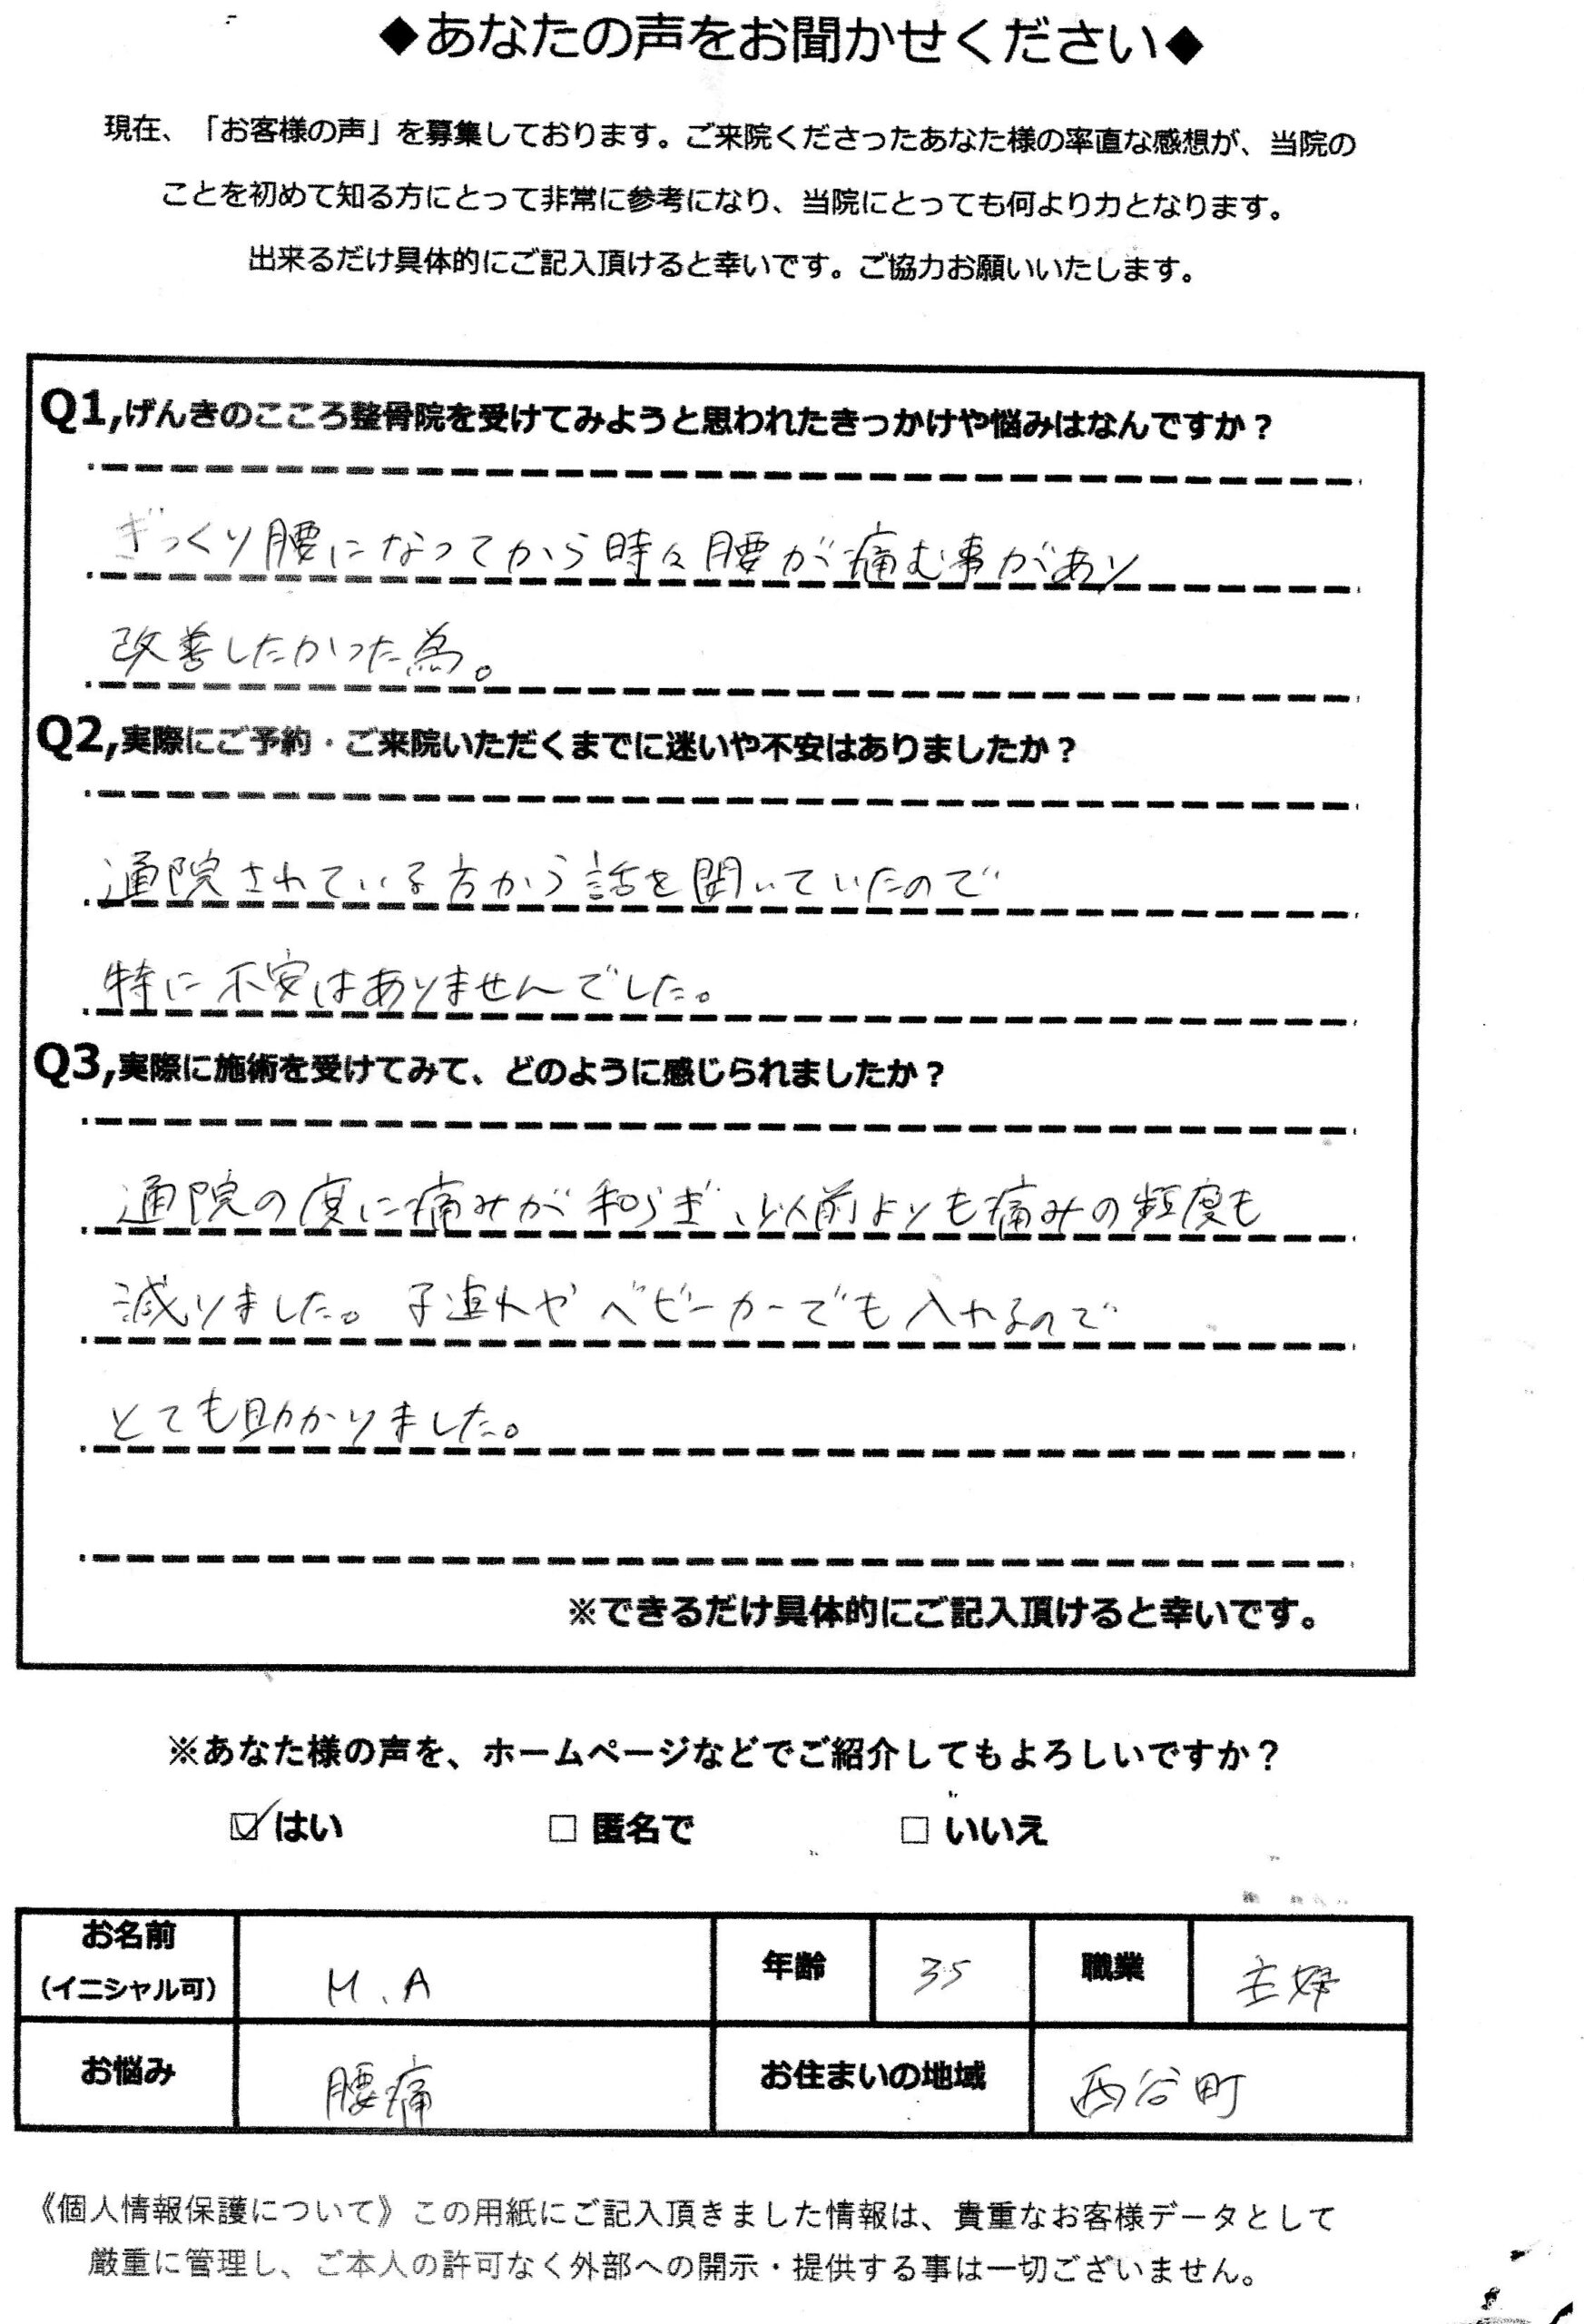 ◆あなたの声をお聞かせください◆
現在、「お客様の声」を募集しております。ご来院くださったあなた様の率直な感想が、当院の
ことを初めて知る方にとって非常に参考になり、当院にとっても何より力となります。
出来るだけ具体的にご記入頂けると幸いです。ご協力お願いいたします。
Q1,げんきのこころ整骨院を受けてみようと思われたきっかけや悩みはなんですか？
ぎっくり腰になってから時々腰が痛む事があり
改善したかった為。
Q2,実際にご予約・ご来院いただくまでに迷いや不安はありましたか？
通院されている方から話を聞いていたので
特に不安はありませんでした。
Q3,実際に施術を受けてみて、どのように感じられましたか？
通院の度に痛みが和らぎ、以前よりも痛みの頻度も
減りました。子連れやベビーカーでも入れるので
とても助かりました。
※できるだけ具体的にご記入頂けると幸いです。
※あなた様の声を、ホームページなどでご紹介してもよろしいですか？
☑はい □匿名で □いいえ
お名前 (イニシャル可) M.A 年齢 35 職業 主婦
お悩み 腰痛 お住まいの地域 西谷町
《個人情報保護について》この用紙にご記入頂きました情報は、貴重なお客様データとして
厳重に管理し、ご本人の許可なく外部への開示・提供する事は一切ございません。